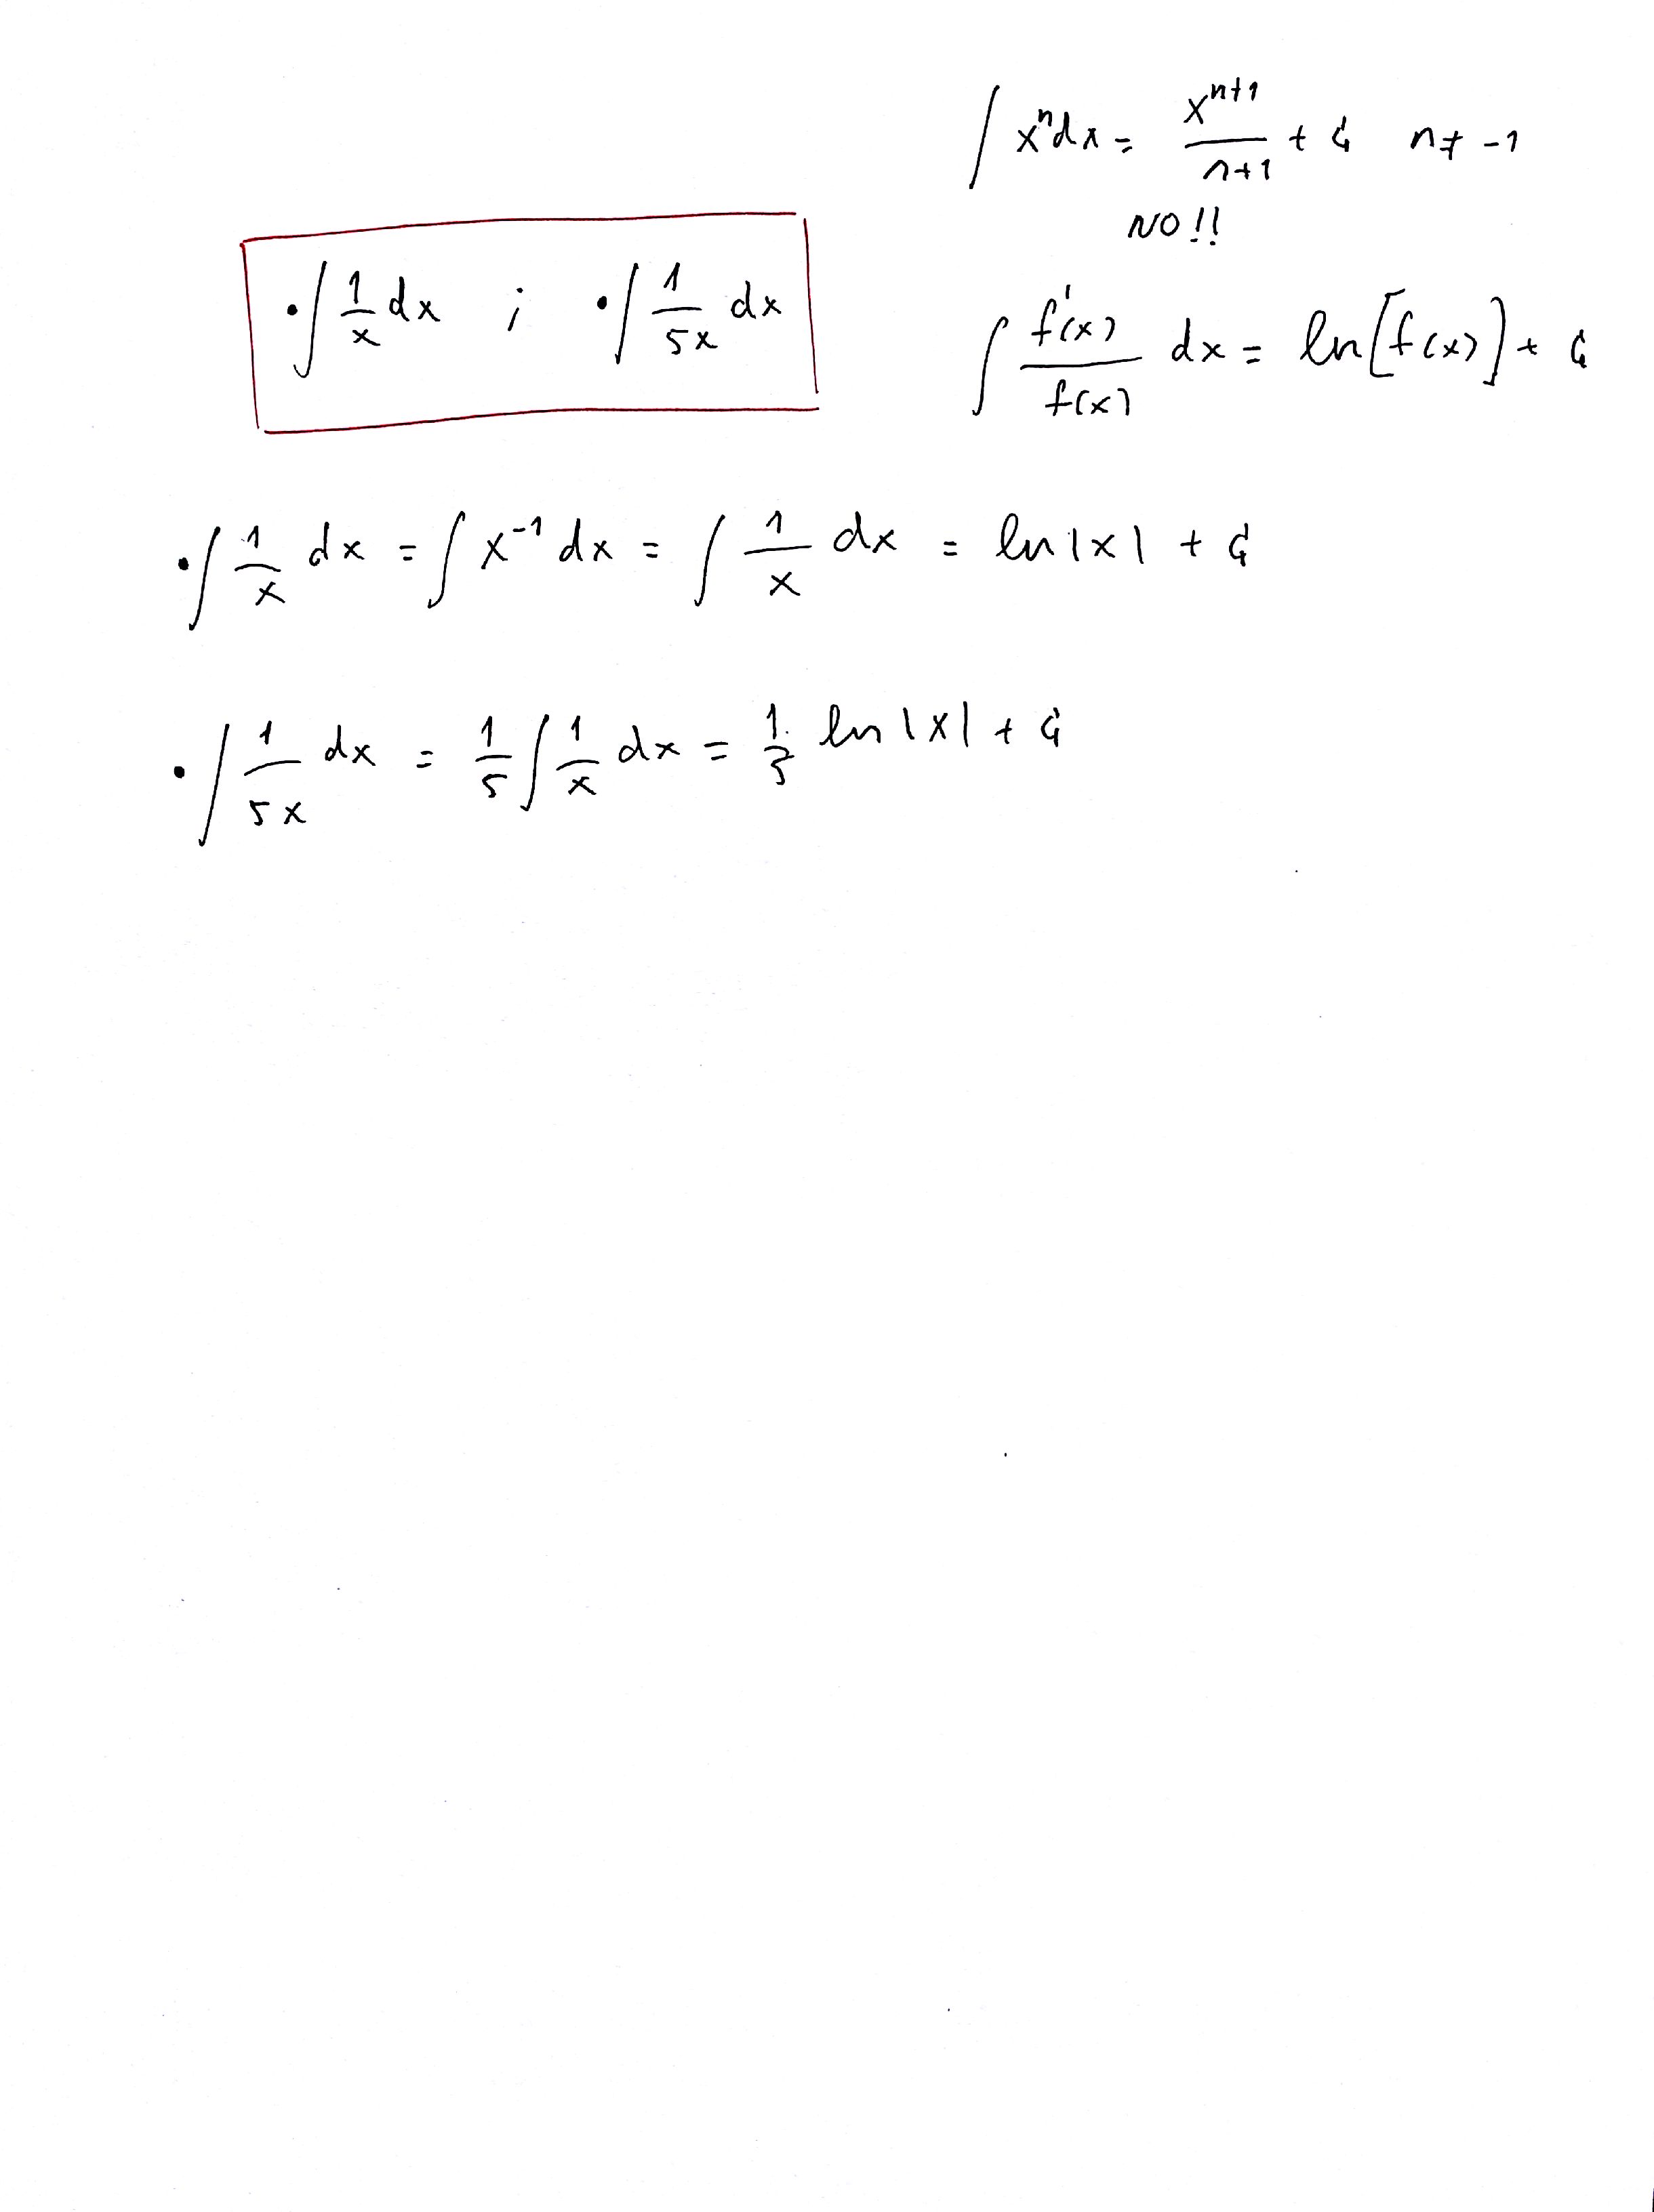 ∫ xⁿdx = xⁿ⁺¹/n+1 + C n ≠ -1
NO!!
• ∫ 1/x dx ; • ∫ 1/5x dx
∫ f'(x)/f(x) dx = ln[f(x)] + C
• ∫ 1/x dx = ∫ x⁻¹ dx = ∫ 1/x dx = ln|x| + C
• ∫ 1/5x dx = 1/5 ∫ 1/x dx = 1/5 ln|x| + C